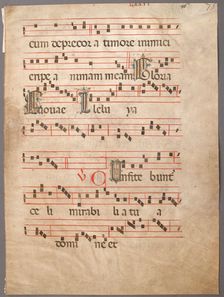 cum deprecor a timore inimici
eripe a nimam meam Gloria
Enovae Alelu ya
Onfite bunt
ce li mirabi li a tu a
domi ne et